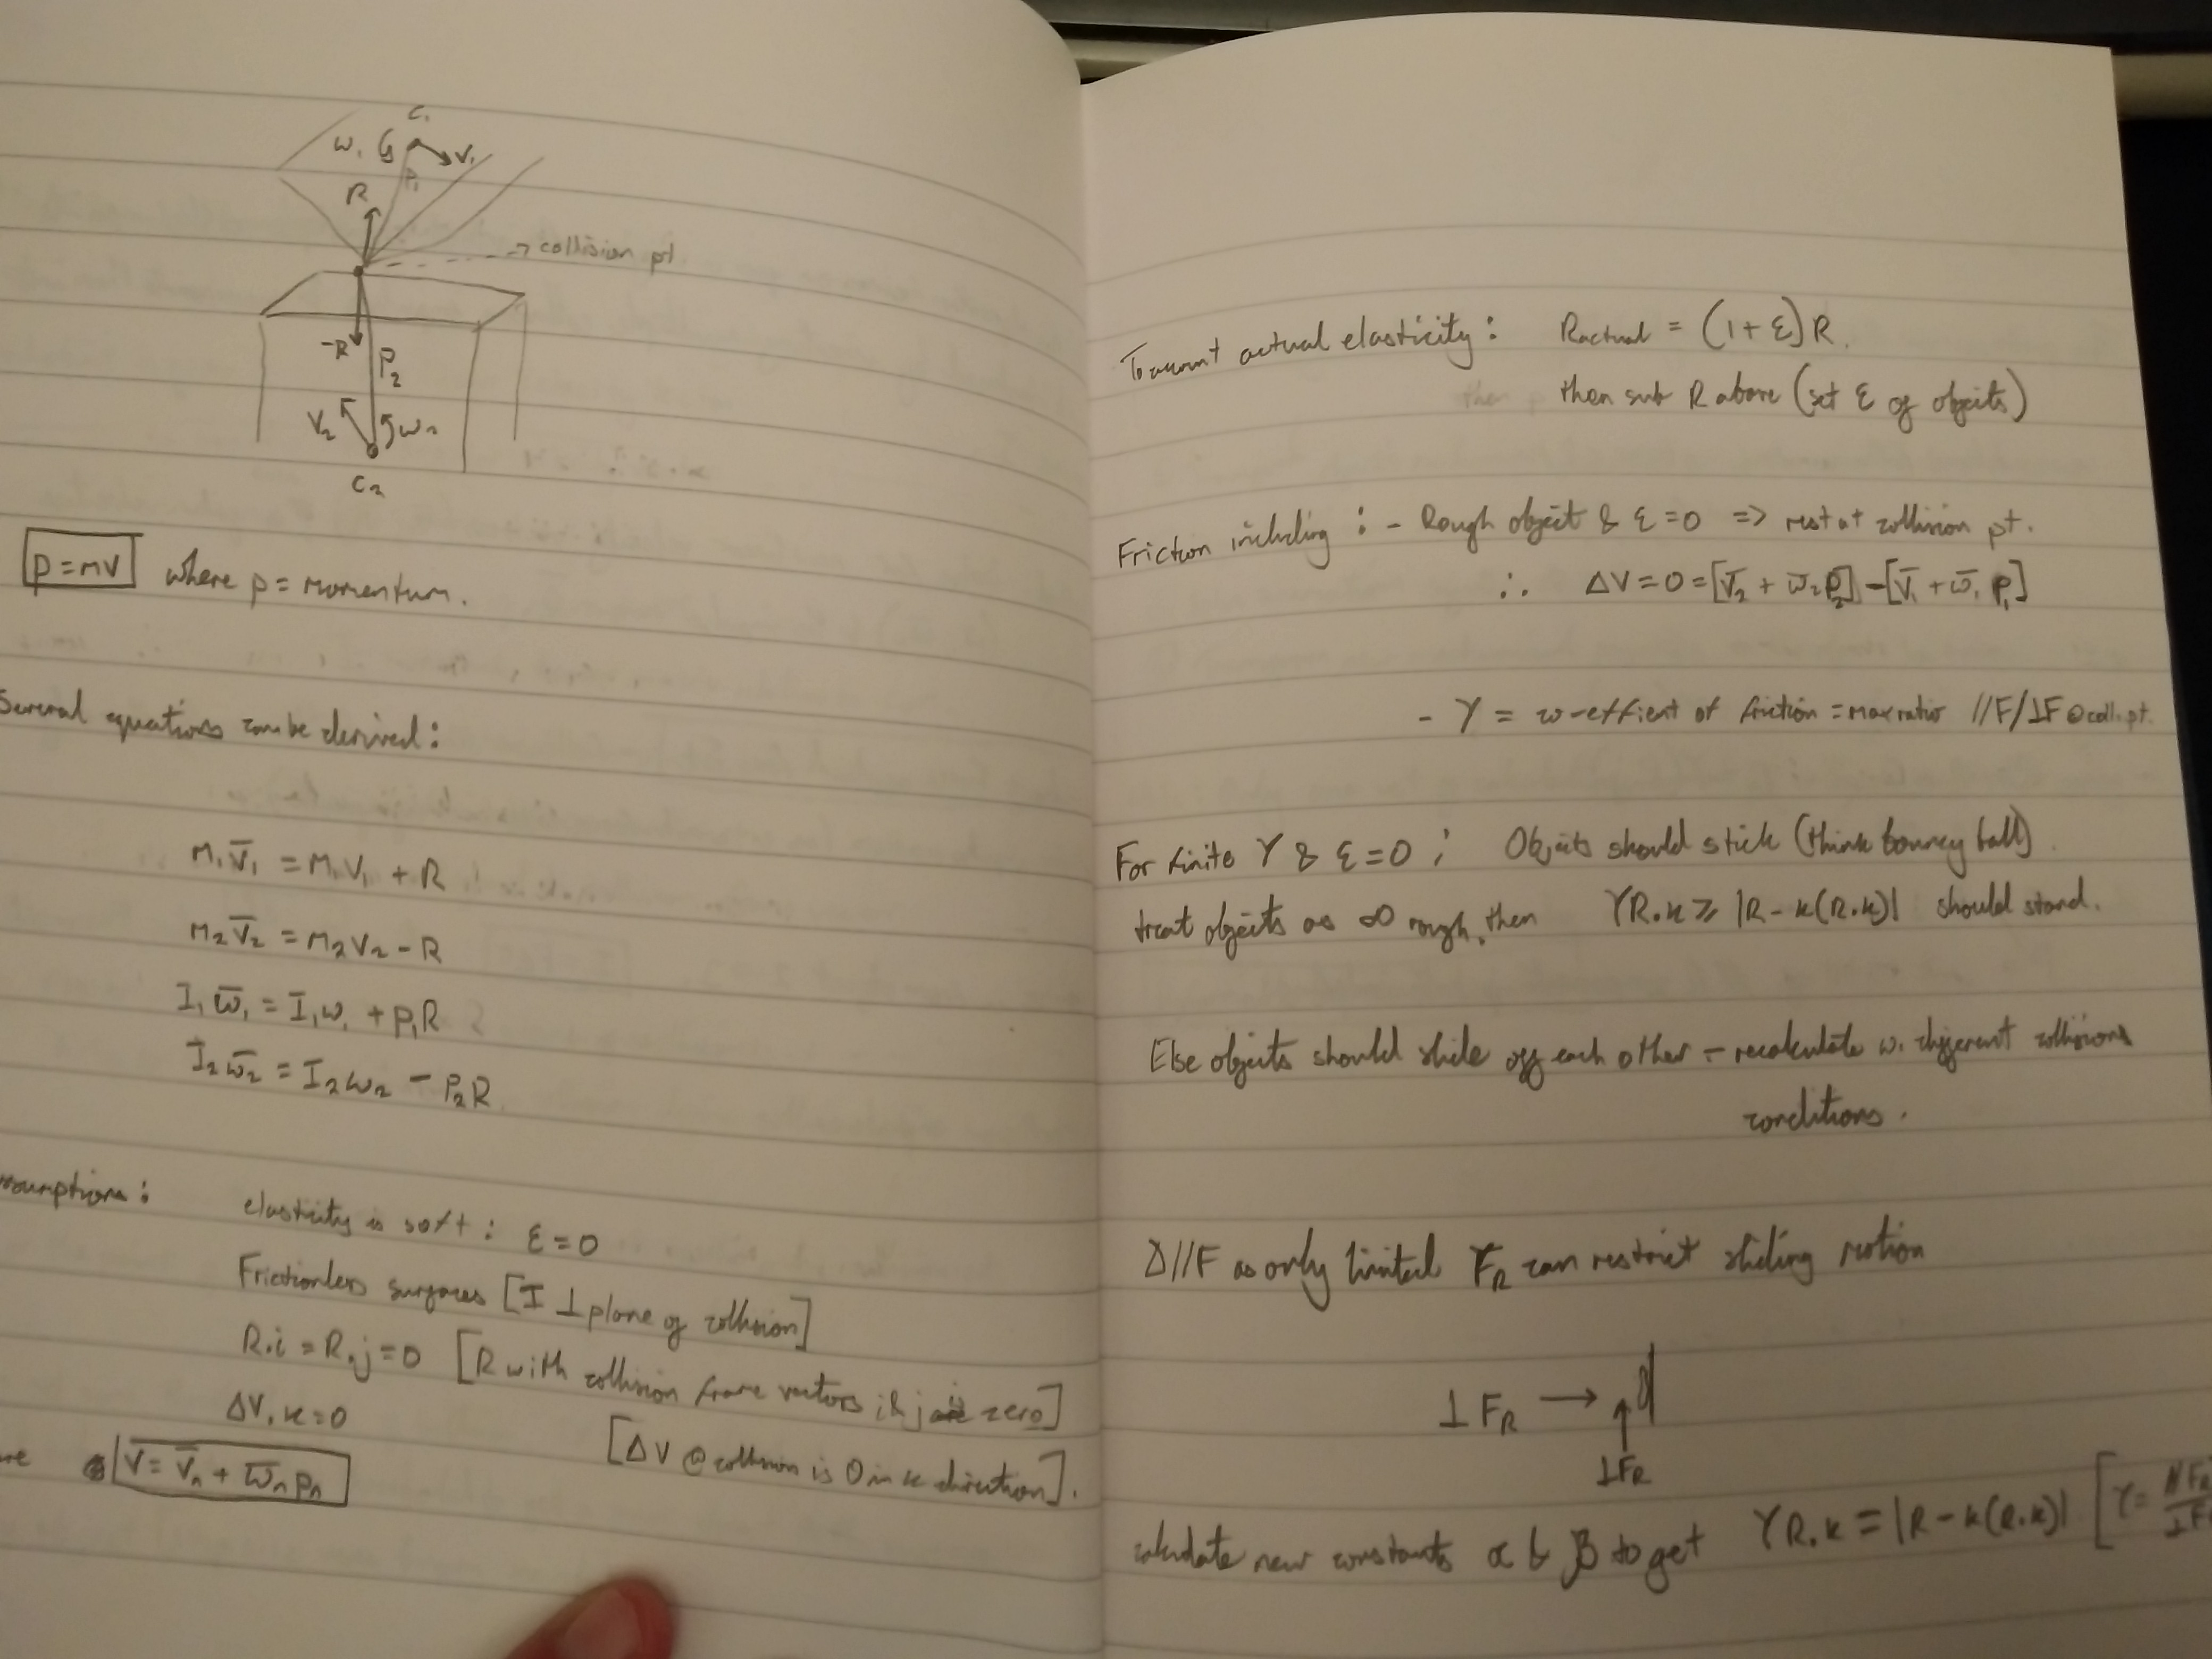 C₁
ω₁
V₁
P₁
R
→ collision pt
-R
P₂
V₂
ω₂
C₂
p = mv where p = momentum.
Several equations can be derived:
M₁V̅₁ = M₁V₁ + R
M₂V̅₂ = M₂V₂ - R
I₁ω̅₁ = I₁ω₁ + P₁R
I₂ω̅₂ = I₂ω₂ - P₂R
elasticity is soft: ε = 0
Frictionless surfaces [I ⊥ plane of collision]
R.i = R.j = 0 [R with collision frame vectors i & j is zero]
ΔV.k = 0 [ΔV @ collision is 0 in k direction].
V̅ = V̅ₙ + ω̅ₙ pₙ
To account actual elasticity: Ractual = (1 + ε)R.
then sub R above (set ε of objects)
Friction including: - Rough object & ε = 0 => rest at collision pt.
∴ ΔV = 0 = [V̅₂ + ω̅₂ P₂] - [V̅₁ + ω̅₁ P₁]
- γ = co-effient of friction = max ratio //F/⊥F @ coll. pt.
For finite γ & ε = 0 : Objects should stick (think bouncey ball)
treat objects as ∞ rough, then γR.k ≥ |R - k(R.k)| should stand.
Else objects should slide off each other - recalculate w. different collisions
conditions.
Δ//F as only limited F_R can restrict sliding motion
⊥ F_R →
⊥F_R
calculate new constants α & β to get γR.k = |R - k(R.k)| [γ =